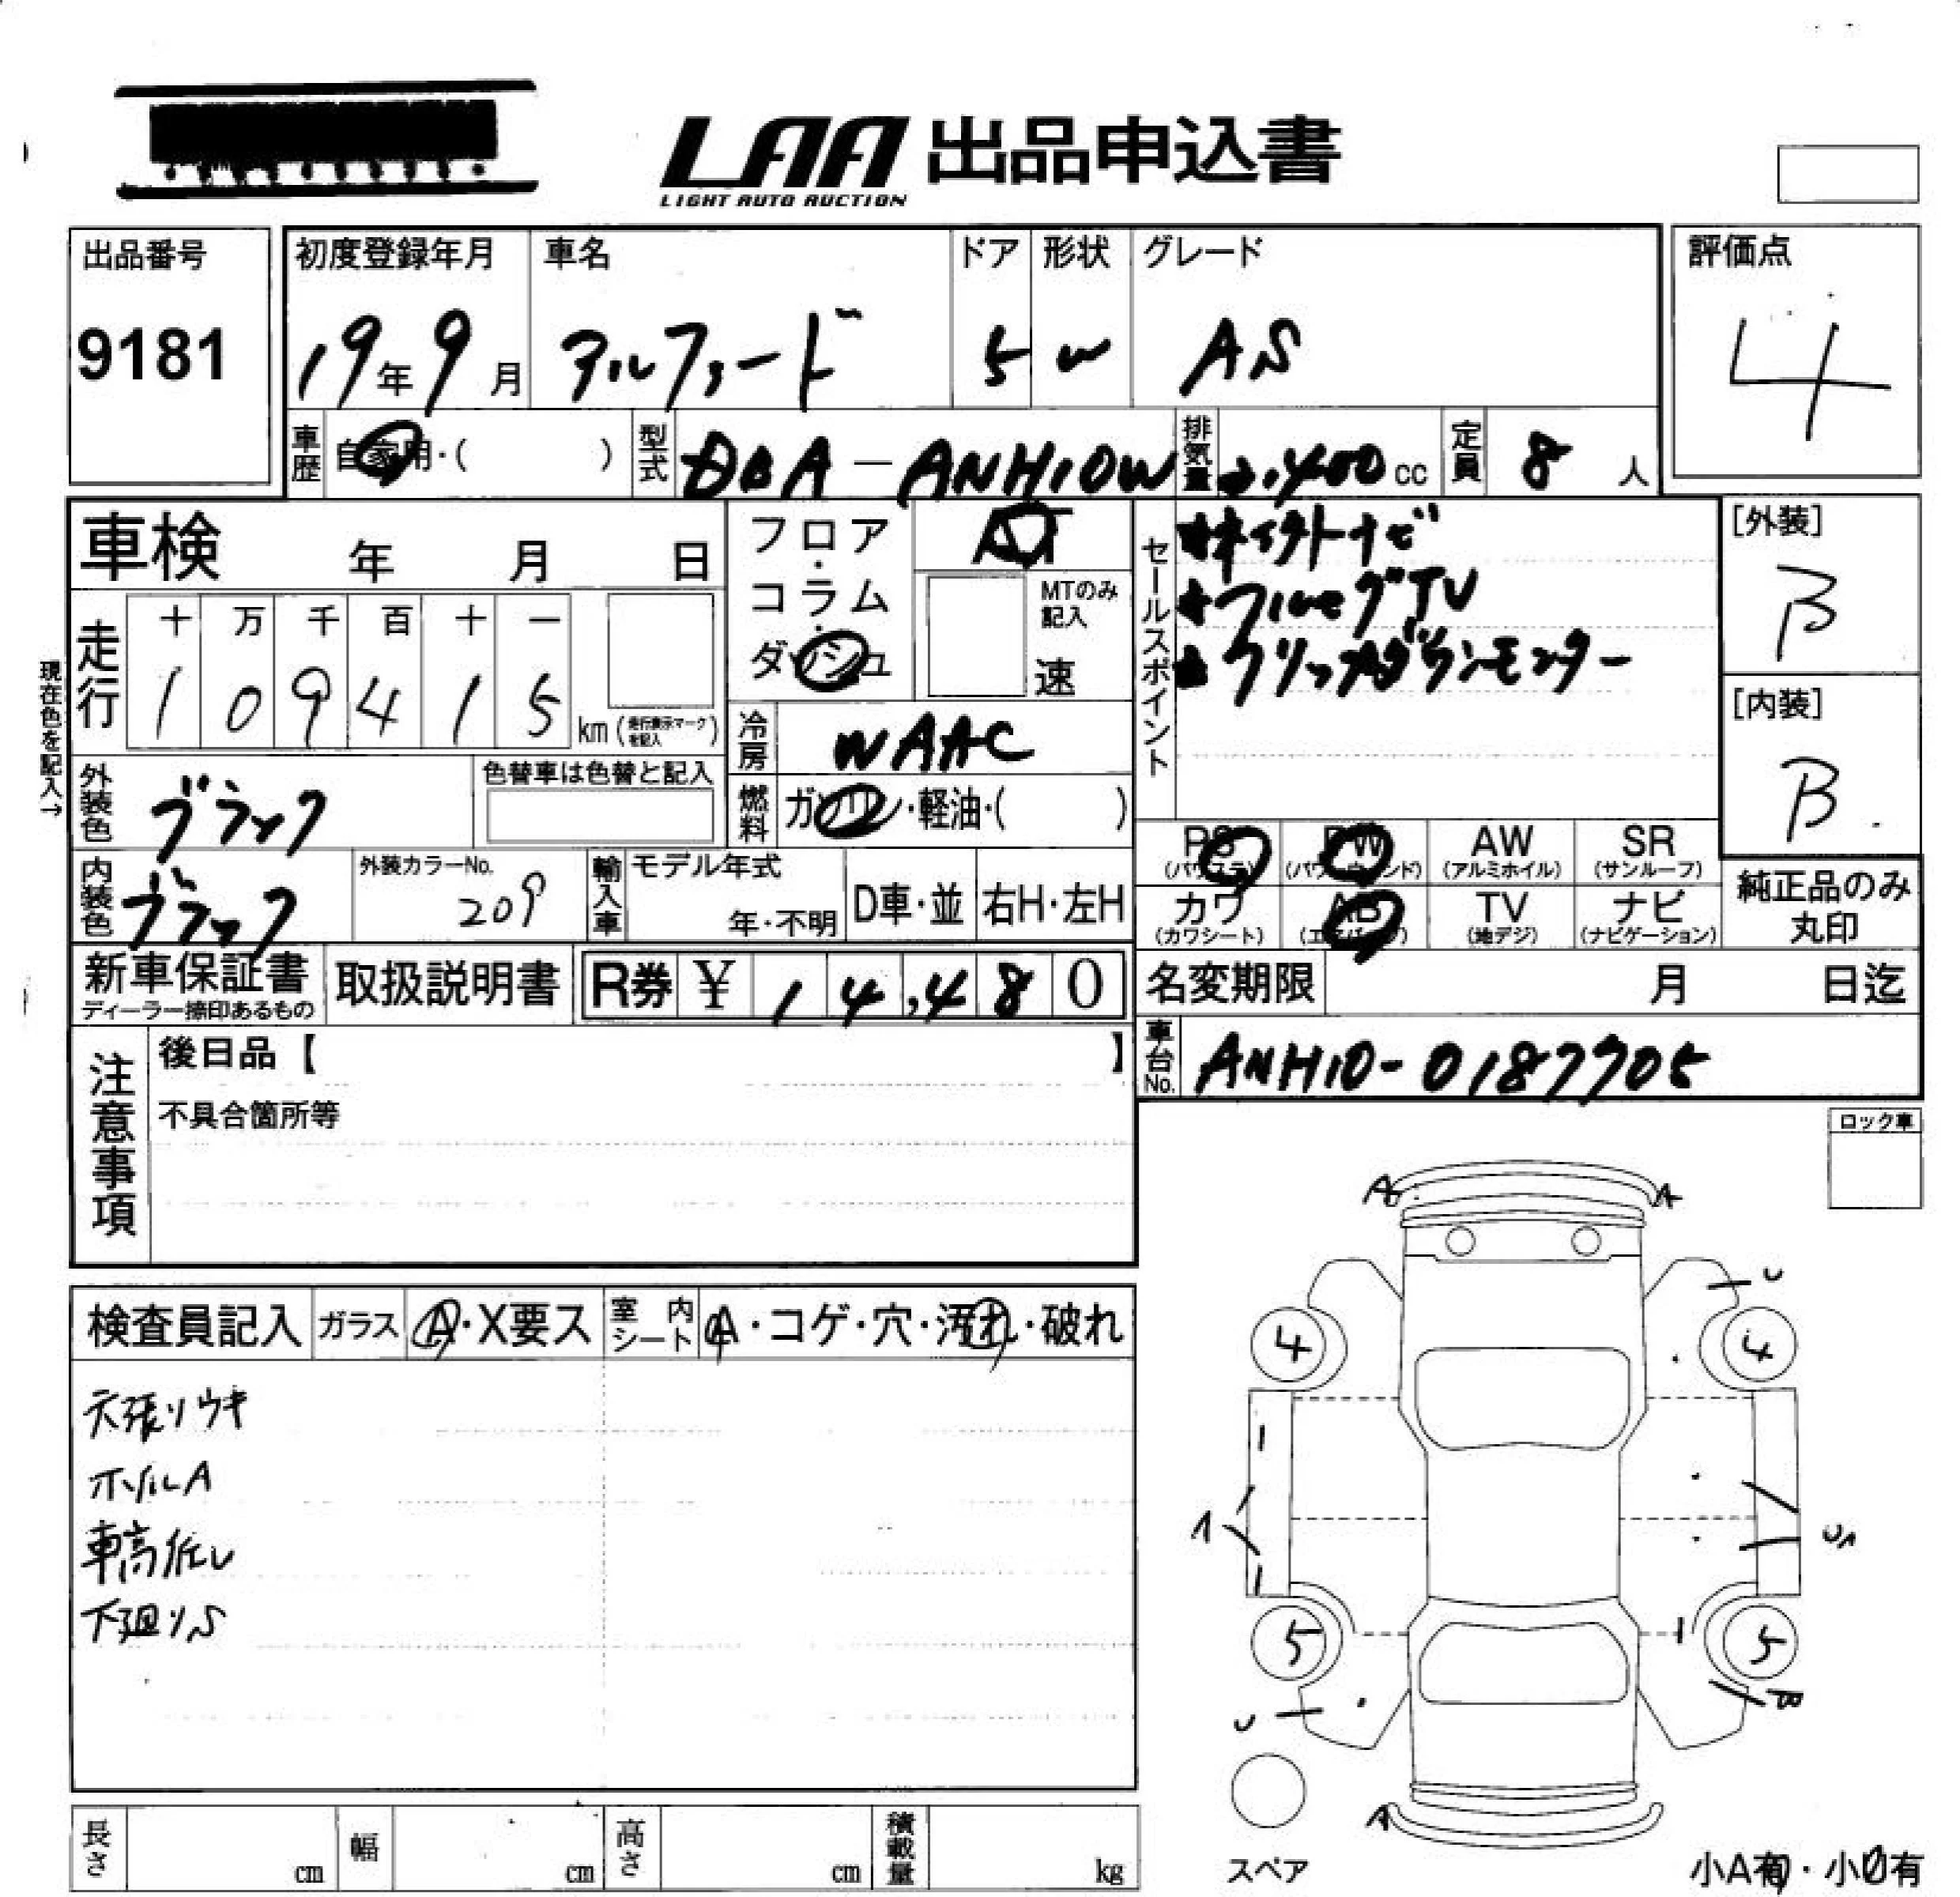 LAA 出品申込書
LIGHT AUTO AUCTION
出品番号
9181
初度登録年月
19年9月
車名
アルファード
ドア
5
形状
W
グレード
AS
評価点
4
車歴 自家用・( )
型式 DBA-ANH10W
排気量 2,400cc
定員 8人
車検 年 月 日
フロア・コラム・ダッシュ
AT
MTのみ記入
速
セールスポイント
フルセグTV
フリップダウンモニター
[外装]
B
[内装]
B
現在色を記入→
走行
十 万 千 百 十 一
1 0 9 4 1 5 km (走行表示マークを記入)
冷房 WAAC
外装色 ブラック
色替車は色替と記入
燃料 ガソリン・軽油・( )
内装色 ブラック
外装カラーNo.
209
輸入車 モデル年式
年・不明
D車・並 右H・左H
PS (パワステ) PW (パワーウインド) AW (アルミホイル) SR (サンルーフ)
カワ (カワシート) AB (エアバッグ) TV (地デジ) ナビ (ナビゲーション)
純正品のみ丸印
新車保証書
ディーラー捺印あるもの
取扱説明書
R券 ¥ 14,480
名変期限 月 日迄
車台No. ANH10-0187705
注意事項
後日品【 】
不具合箇所等
ロック車
検査員記入 ガラス A・X要ス 室内シート A・コゲ・穴・汚れ・破れ
天張りウキ
ホイルA
車高低し
下廻りS
A A
U
4 4
A
UA
5 5
U
B
A
スペア
小A有・小U有
長さ cm 幅 cm 高さ cm 積載量 kg